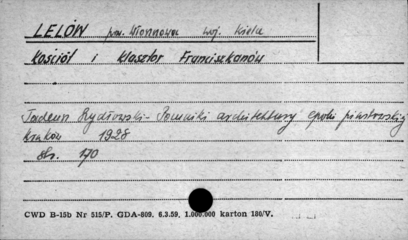 LELÓW pow. Włoszczowa woj. Kielce
Kościół i klasztor Franciszkanów
Tadeusz Szydłowski - Pomniki architektury epoki piastowskiej
Kraków 1928
str. 170
CWD B-15b Nr 515/P. GDA-809. 6.3.59. 1.000.000 karton 180/V.